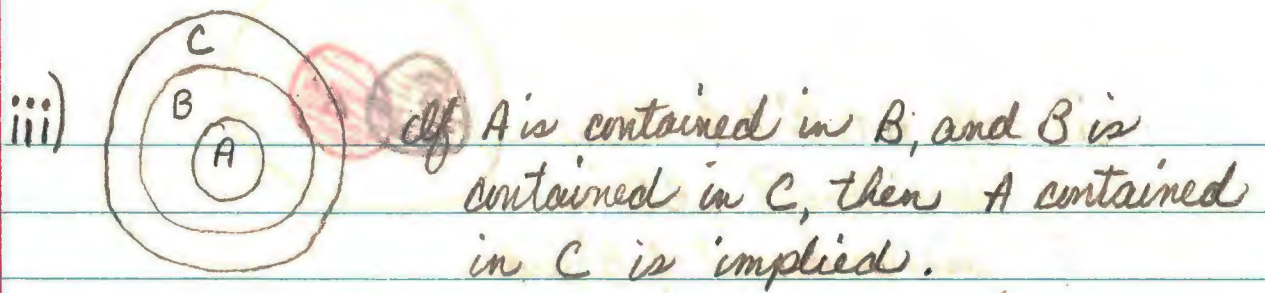 C
B
A
iii) If A is contained in B, and B is
contained in C, then A contained
in C is implied.